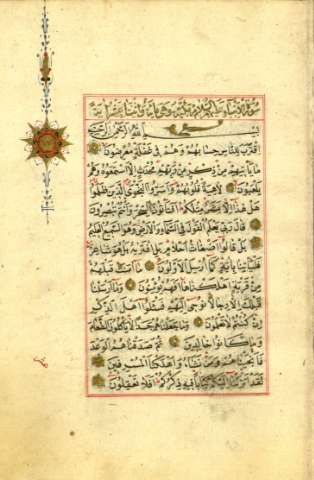 سورة الأنبياء عليهم السلام مكية وهي مائة واثنتا عشر آية
بِسْمِ اللَّهِ الرَّحْمَنِ الرَّحِيمِ
اِقْتَرَبَ لِلنَّاسِ حِسَابُهُمْ وَهُمْ فِي غَفْلَةٍ مُعْرِضُونَ
مَا يَأْتِيهِمْ مِنْ ذِكْرٍ مِنْ رَبِّهِمْ مُحْدَثٍ إِلَّا اسْتَمَعُوهُ وَهُمْ
يَلْعَبُونَ لَاهِيَةً قُلُوبُهُمْ وَأَسَرُّوا النَّجْوَى الَّذِينَ ظَلَمُوا
هَلْ هَذَا إِلَّا بَشَرٌ مِثْلُكُمْ أَفَتَأْتُونَ السِّحْرَ وَأَنْتُمْ تُبْصِرُونَ
قَالَ رَبِّي يَعْلَمُ الْقَوْلَ فِي السَّمَاءِ وَالْأَرْضِ وَهُوَ السَّمِيعُ الْعَلِيمُ
بَلْ قَالُوا أَضْغَاثُ أَحْلَامٍ بَلِ افْتَرَيهُ بَلْ هُوَ شَاعِرٌ
فَلْيَأْتِنَا بِآيَةٍ كَمَا أُرْسِلَ الْأَوَّلُونَ مَا آمَنَتْ قَبْلَهُمْ
مِنْ قَرْيَةٍ أَهْلَكْنَاهَا أَفَهُمْ يُؤْمِنُونَ وَمَا أَرْسَلْنَا
قَبْلَكَ إِلَّا رِجَالًا نُوحِي إِلَيْهِمْ فَسْئَلُوا أَهْلَ الذِّكْرِ
إِنْ كُنْتُمْ لَا تَعْلَمُونَ وَمَا جَعَلْنَاهُمْ جَسَدًا لَا يَأْكُلُونَ الطَّعَامَ
وَمَا كَانُوا خَالِدِينَ ثُمَّ صَدَقْنَاهُمُ الْوَعْدَ
فَأَنْجَيْنَاهُمْ وَمَنْ نَشَاءُ وَأَهْلَكْنَا الْمُسْرِفِينَ
لَقَدْ أَنْزَلْنَا إِلَيْكُمْ كِتَابًا فِيهِ ذِكْرُكُمْ أَفَلَا تَعْقِلُونَ